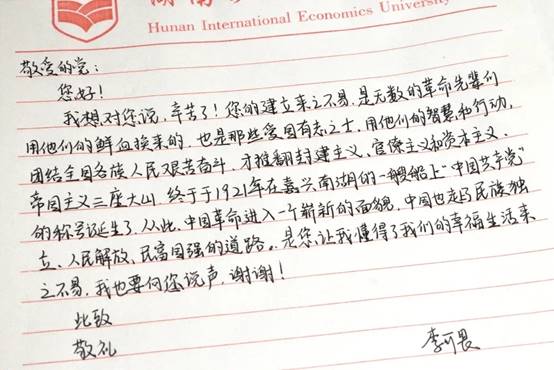 Hunan International Economics University
敬爱的党：
您好！
我想对您说，辛苦了！您的建立来之不易，是无数的革命先辈们
用他们的鲜血换来的，也是那些爱国有志之士，用他们的智慧和行动，
团结全国各族人民艰苦奋斗，才推翻封建主义、官僚主义和资本主义、
帝国主义三座大山，终于于1921年在嘉兴南湖的一艘船上“中国共产党”
的称号诞生了，从此，中国革命进入一个崭新的面貌，中国也走与民族独
立、人民解放、民富国强的道路。是您，让我懂得了我们的幸福生活来
之不易，我也要向您说声，谢谢！
此致
敬礼
李可畏